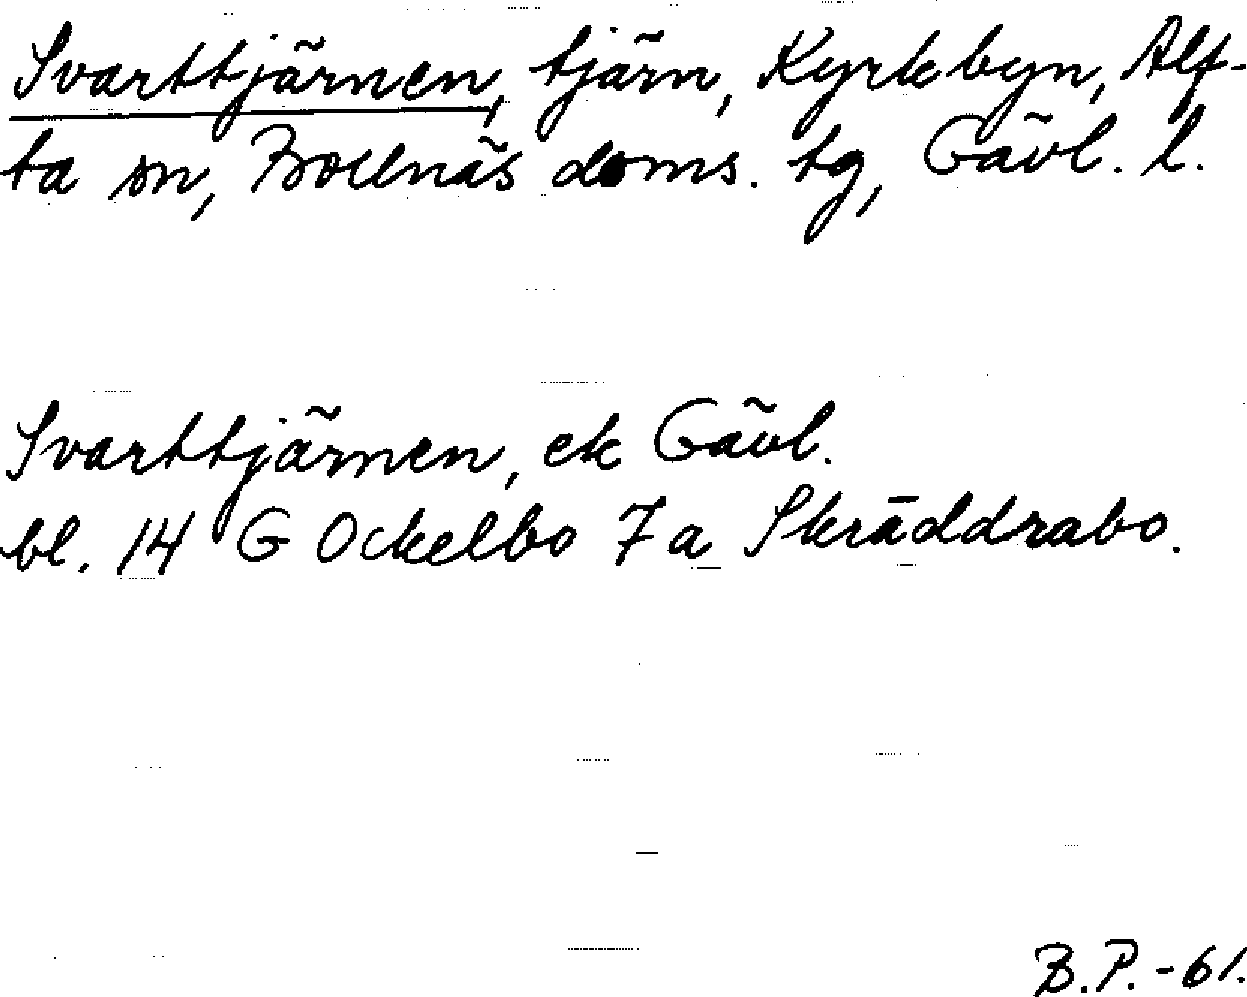 Svarttjärnen, tjärn, Kyrkbyn, Alf-
ta sn, Bollnäs doms. tg, Gävl. l.
Svarttjärnen, ek Gävl.
bl. 14 G Ockelbo 7 a Skräddrabo.
B.P.-61.